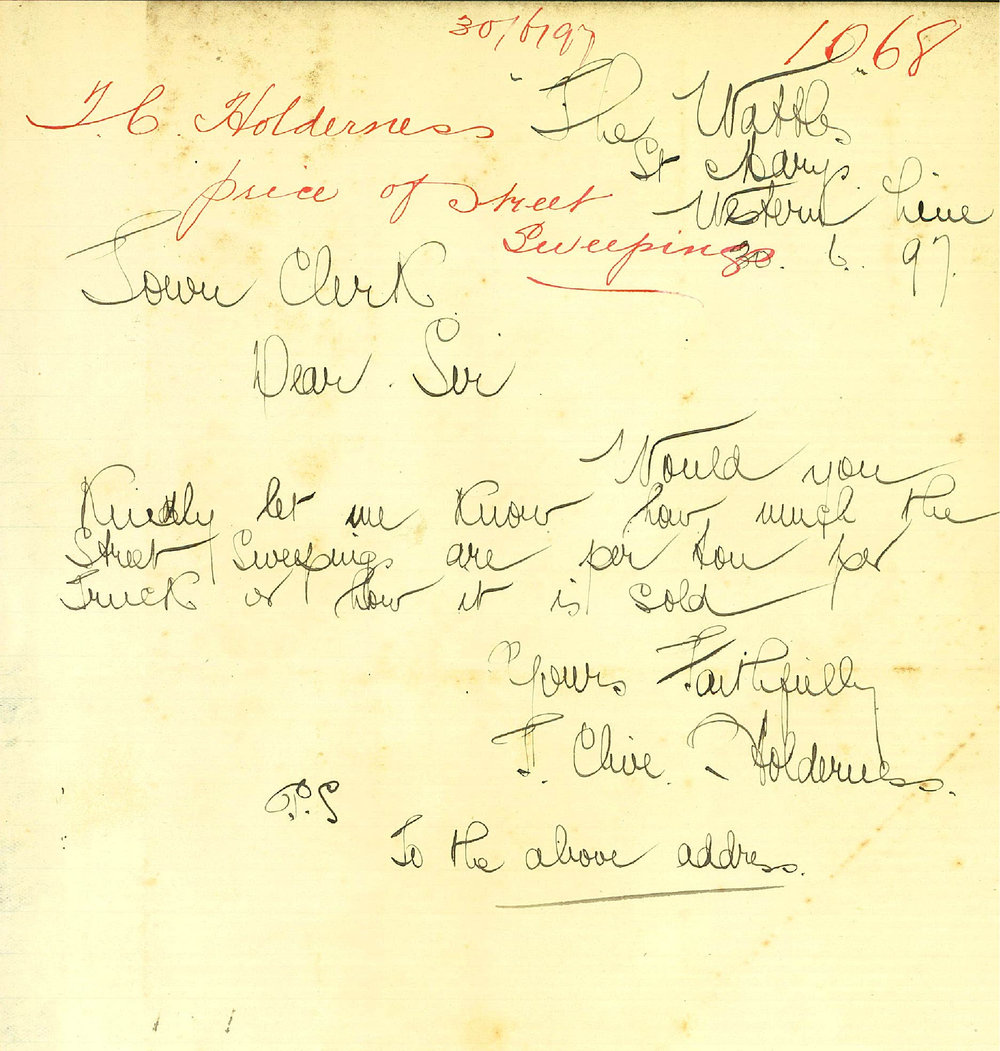 30/6/97
1068
T. C. Holderness
price of street
Sweepings
"The Wattles"
St Marys
Western Line
30. 6. 97.
Town Clerk.
Dear Sir
Would you
Kindly let me know how much the
Street Sweepings are per ton per
Truck or how it is sold
Yours Faithfully
T. Clive. Holderness.
P.S
To the above address.